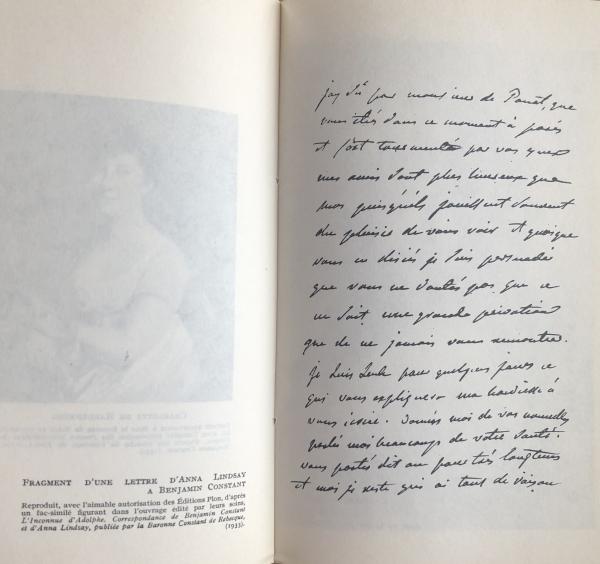 FRAGMENT D'UNE LETTRE D'ANNA LINDSAY
A BENJAMIN CONSTANT
Reproduit, avec l'aimable autorisation des Éditions Plon, d'après
un fac-similé figurant dans l'ouvrage édité par leurs soins,
L'Inconnue d'Adolphe. Correspondance de Benjamin Constant
et d'Anna Lindsay, publiée par la Baronne Constant de Rebecque,
(1933).
par monsieur de que
vous dans ce moment à
par vos yeux
mes amis sont plus heureux que
jouissent souvent
du plaisir de vous voir et quoique
vous en je suis persuadée
que vous ne pas que ce
ne soit une grande privation
que de ne jamais vous rencontrer.
je suis seule pour quelques jours ce
qui vous expliquera ma
vous de vos nouvelles
moi beaucoup de votre santé.
vous dit on
et moi je